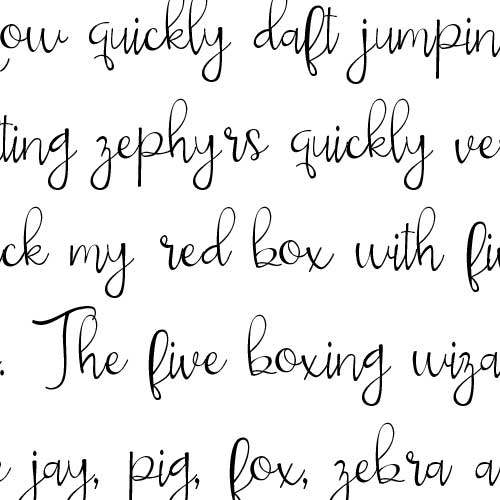 How quickly daft jumpin
tting zephyrs quickly ve
ck my red box with fi
. The five boxing wiza
jay, pig, fox, zebra a